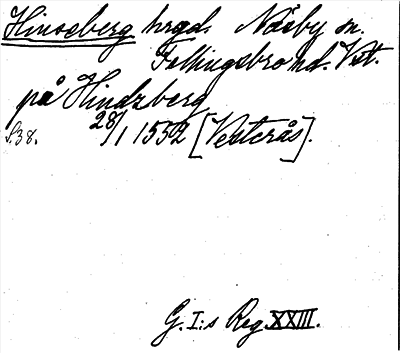 Hinseberg hrgd. Näsby sn.
Fellingsbro hd. Vst.
på Hindzberg
S. 38. 28/1 1552 [Vesterås].
G. I:s Reg. XXIII.